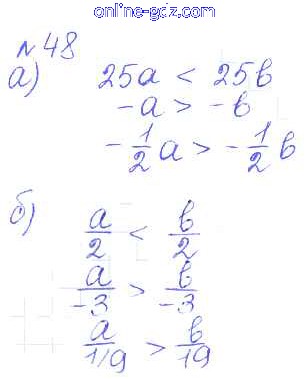 online-gdz.com
№ 48
а) 25a < 25b
-a > -b
-1/2 a > -1/2 b
б) a/2 < b/2
a/-3 > b/-3
a/1/9 > b/19